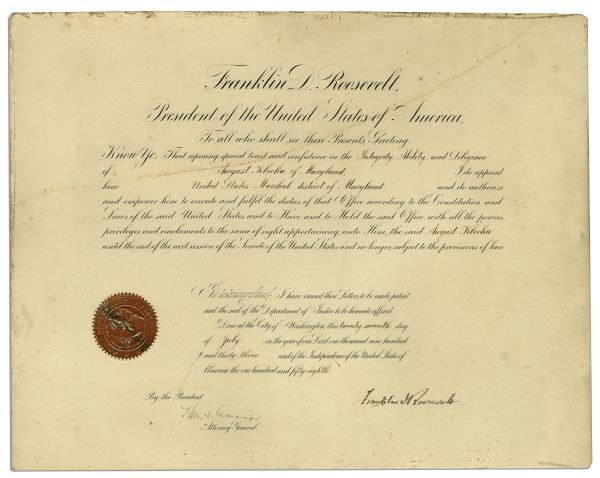 Franklin D. Roosevelt,
President of the United States of America,
To all who shall see these Presents, Greeting:
Know Ye; That reposing special trust and confidence in the Integrity, Ability, and Diligence
of August Klecka of Maryland, I do appoint
him United States Marshal district of Maryland, and do authorize
and empower him to execute and fulfil the duties of that Office according to the Constitution and
Laws of the said United States, and to Have and to Hold the said Office, with all the powers,
privileges and emoluments to the same of right appertaining, unto Him, the said August Klecka
until the end of the next session of the Senate of the United States and no longer, subject to the provisions of law.
In testimony whereof, I have caused these Letters to be made patent
and the seal of the Department of Justice to be hereunto affixed.
Done at the City of Washington this twenty seventh day
of July, in the year of our Lord one thousand nine hundred
and thirty three and of the Independence of the United States of
America the one hundred and fifty eighth.
By the President:
Franklin D Roosevelt
Attorney General.